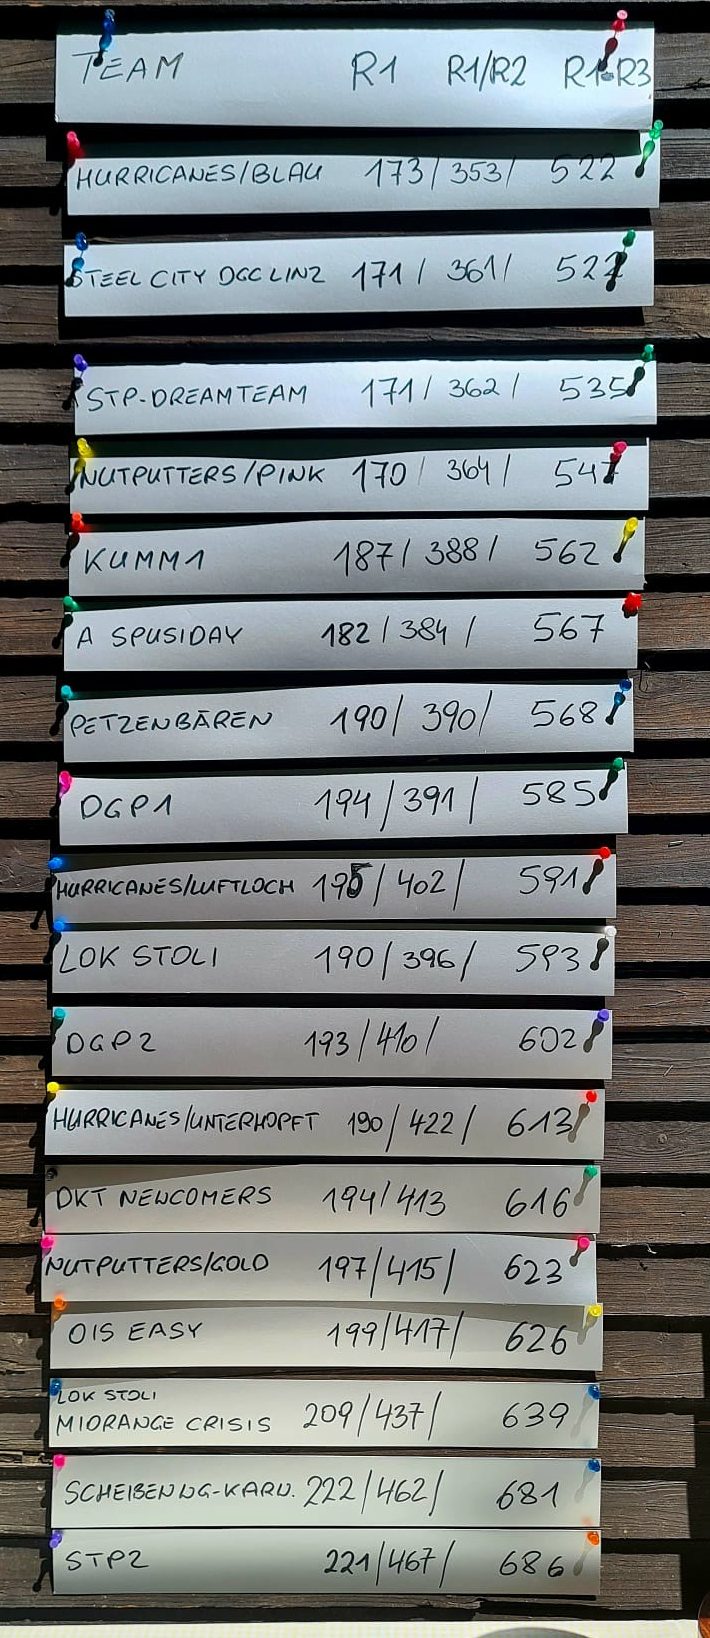 TEAM R1 R1/R2 R1-R3
HURRICANES/BLAU 173/ 353/ 522
STEEL CITY DGC LINZ 171/ 361/ 527
STP-DREAMTEAM 171/ 362/ 535
NUTPUTTERS/PINK 170/ 364/ 547
KUMM1 187/ 388/ 562
A SPUSIDAY 182/ 384/ 567
PETZENBÄREN 190/ 390/ 568
DGP1 194/391/ 585
HURRICANES/LUFTLOCH 195/402/ 591
LOK STOLI 190/396/ 593
DGP2 193/410/ 602
HURRICANES/UNTERHOPFT 190/422/ 613
DKT NEWCOMERS 194/413 616
NUTPUTTERS/GOLD 197/415/ 623
OIS EASY 199/417/ 626
LOK STOLI
MIDRANGE CRISIS 209/437/ 639
SCHEIBENNG-KARN. 222/462/ 681
STP2 221/467/ 686